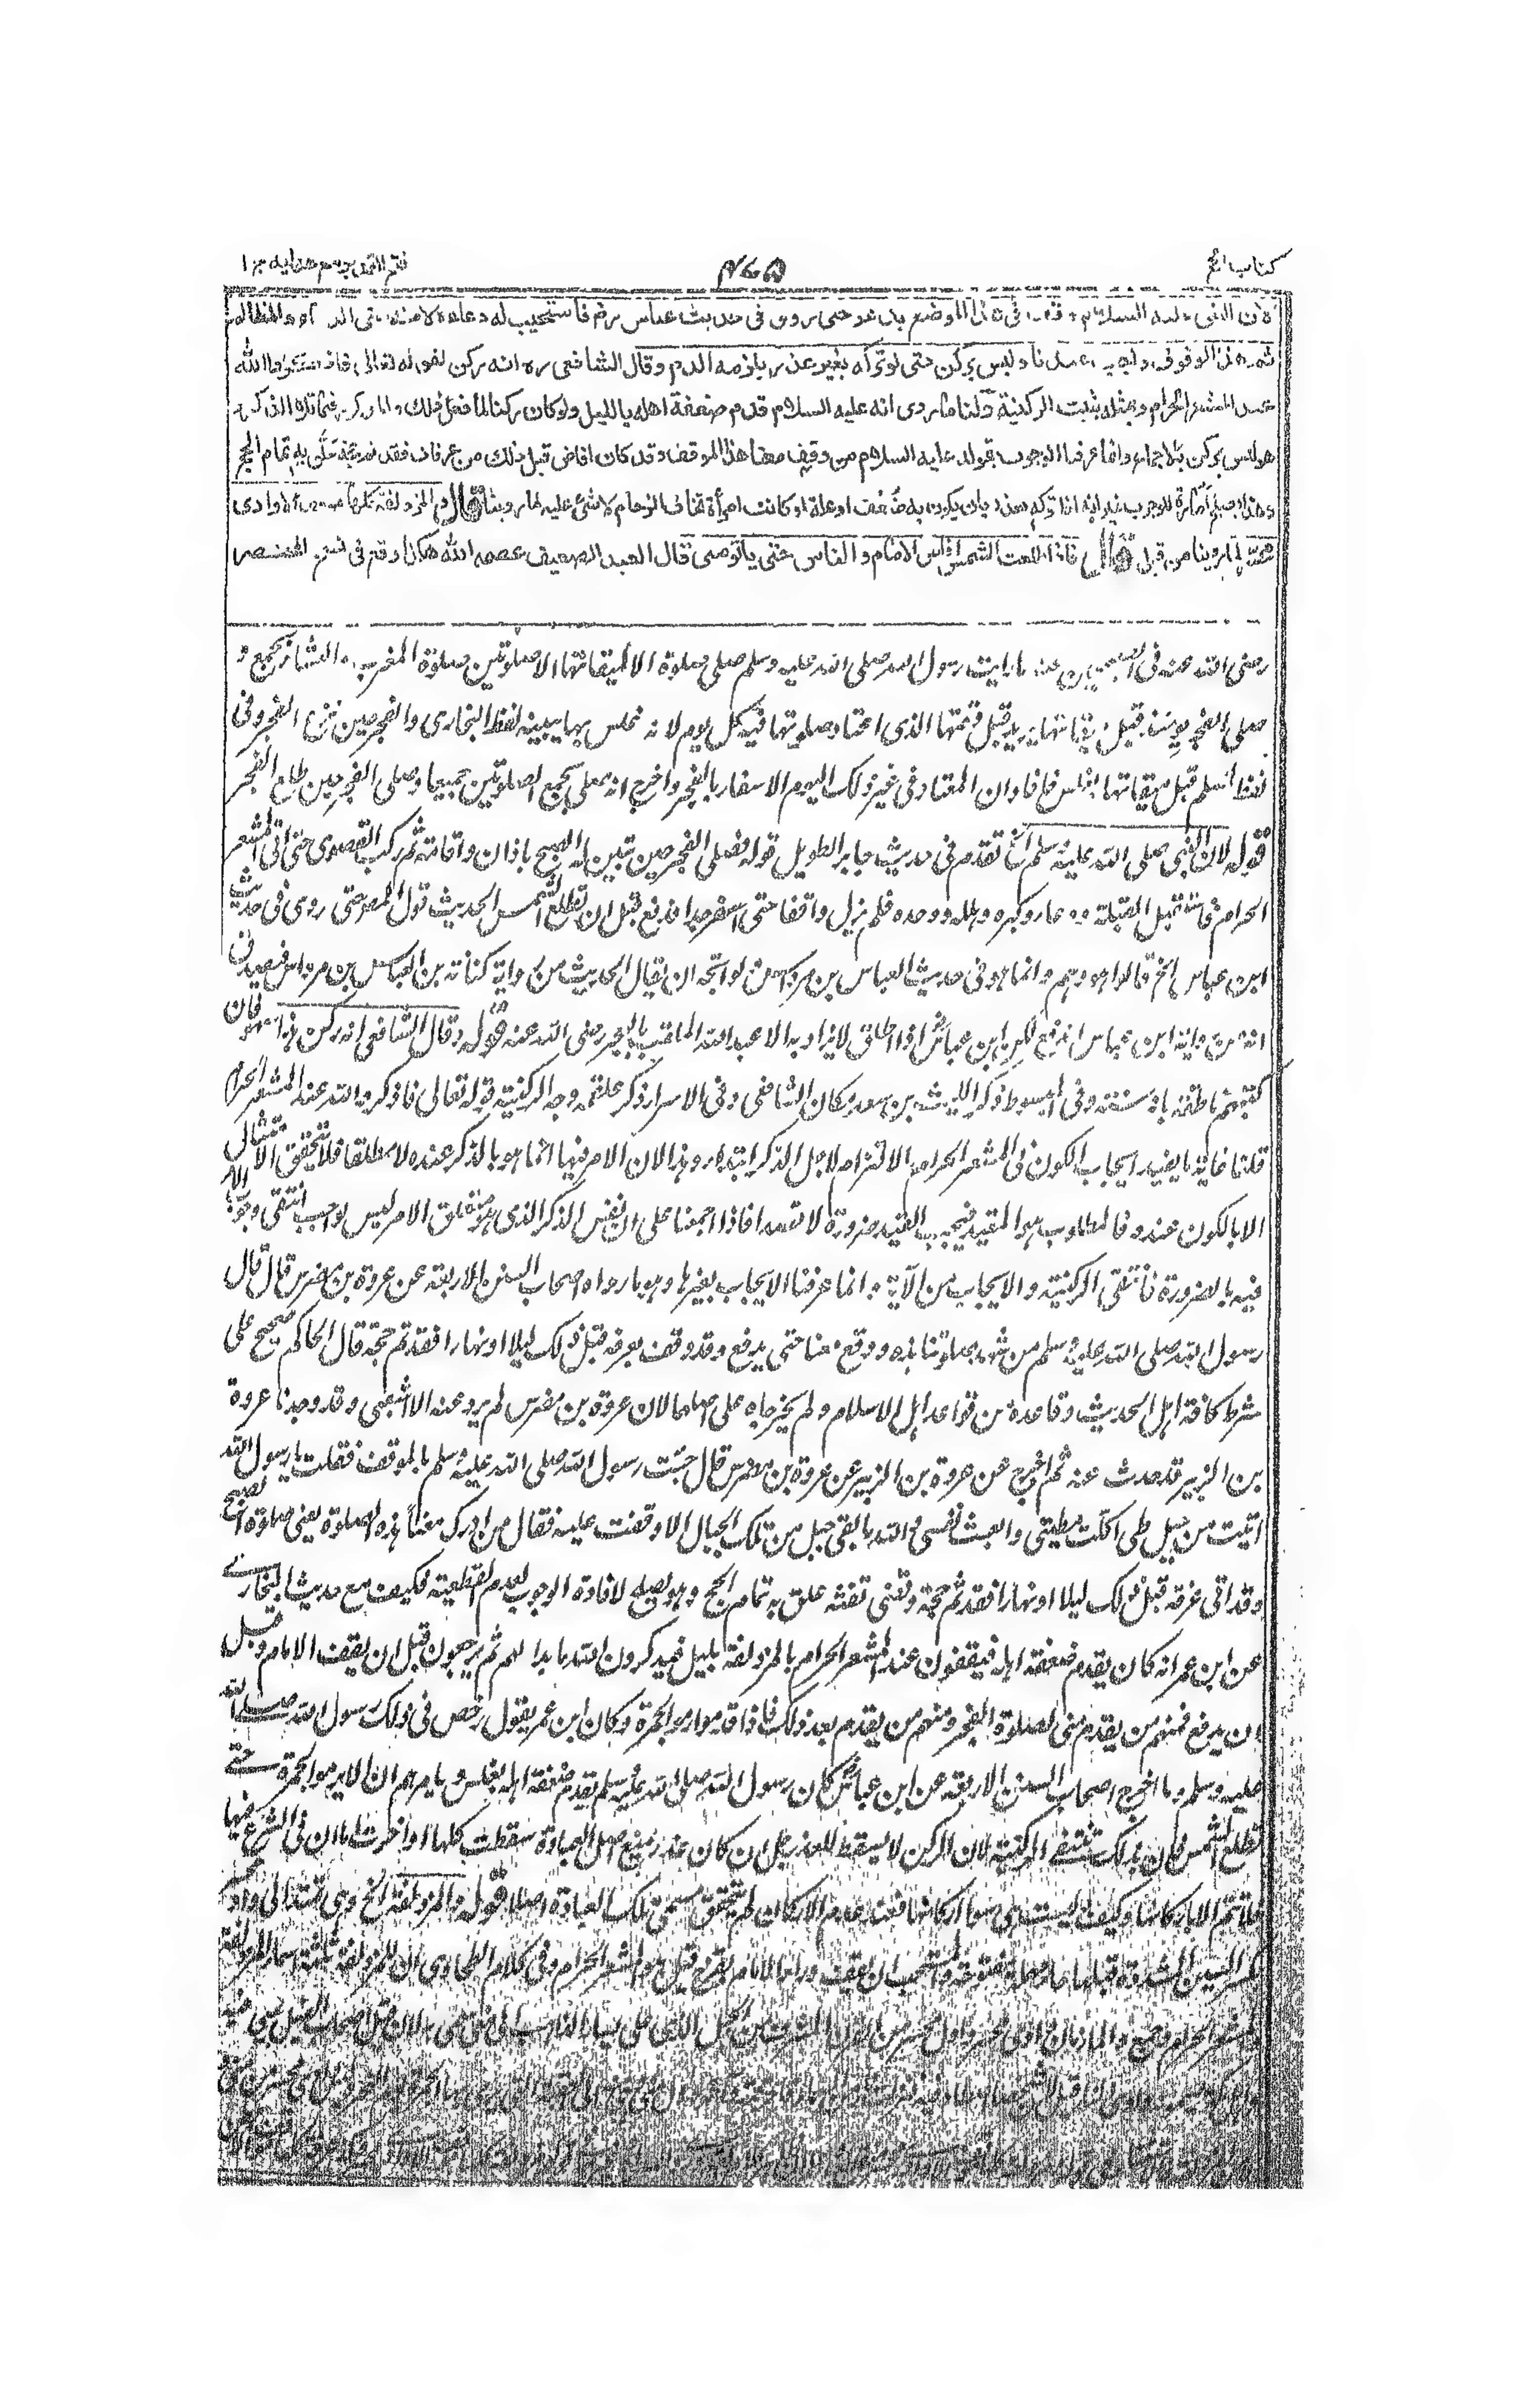 كتاب الحج
٤٧٥
فتح القدير مع هداية ج ١
لان النبى عليه السلام وقف فى هذا الموضع يدعو حتى روى فى حديث ابن عباس رض فاستجيب له دعاءه لامته حتى الدماء والمظالم
ثم هذا الوقوف واجب عندنا وليس بركن حتى لو تركه بغير عذر يلزمه الدم وقال الشافعى ره انه ركن لقوله تعالى فاذكروا الله
عند المشعر الحرام وبمثله يثبت الركنية ولنا ما روى انه عليه السلام قدم ضعفة اهله بالليل ولو كان ركنا لما فعل ذلك والمذكور فيما تلاه الذكر و
هو ليس بركن بالاجماع وانما عرفنا الوجوب بقوله عليه السلام من وقف معنا هذا الموقف وقد كان افاض قبل ذلك من عرفات فقد تم حجه علق به تمام الحج
وهذا يصلح امارة للوجوب غير انه اذا تركه بعذر بان يكون به ضعف او علة او كانت امرأة تخاف الزحام لا شئ عليه لما روينا قال والمزدلفة كلها موقف الا وادى
محسر لما روينا من قبل قال فاذا طلعت الشمس افاض الامام والناس حتى ياتوا منى قال العبد الضعيف عصمه الله هكذا وقع فى نسخ المختصر
رضى الله عنه فى الصحيحين عنه ما رايت رسول الله صلى الله عليه وسلم صلى صلوة الا لميقاتها الا صلوتين صلوة المغرب والعشاء بجمع و
صلى الفجر يومئذ قبل ميقاتها يريد قبل وقتها الذى اعتاد صلوتها فيه كل يوم لانه غلس بها يبينه لفظ البخارى والفجر حين بزغ الفجر وفى
لفظ لمسلم قبل ميقاتها بغلس فافاد ان المعتاد فى غير ذلك اليوم الاسفار بالفجر واخرج انه صلى بجمع الصلوتين جميعا وصلى الفجر حين طلع الفجر
قوله لان النبى صلى الله عليه وسلم الخ تقدم فى حديث جابر الطويل قوله فصلى الفجر حين تبين له الصبح باذان واقامة ثم ركب القصوى حتى اتى المشعر
الحرام فاستقبل القبلة ودعا وكبره وهلله ووحده فلم يزل واقفا حتى اسفر جدا فدفع قبل ان تطلع الشمس الحديث قول المصر حتى روى فى حديث
ابن عباس الخ قالوا هو وهم وانما هو فى حديث العباس بن مرداس لو اتجه ان يقال الحديث من رواية كنانة بن العباس بن مرداس فيصدق
انه من رواية ابن عباس اندفع لكن ابن عباس اذا اطلق لا يراد به الا عبد الله الملقب بالحبر رضى الله عنه قوله وقال الشافعى انه ركن هذا سهو فان
كتبهم ناطقة بانه سنة وفى المبسوط ذكر الليث بن سعد مكان الشافعى وفى الاسرار ذكر علقمة وجه الركنية قوله تعالى فاذكروا الله عند المشعر الحرام
قلنا غاية ما يفيد ايجاب الكون فى المشعر الحرام الا التزام لاجل الذكر ابتداء وهذا لان الامر فيها انما هو بالذكر عنده لا مطلقا فلا يتحقق الامتثال
الا بالكون عنده فالمطلوب هو المقيد فيجب القيد ضرورة لا قصدا فاذا اجمعنا على ان نفس الذكر الذى هو متعلق الامر ليس بواجب انتفى وجوب الامر
فيه بالضرورة فانتفى الركنية والايجاب من الآية وانما عرفنا الايجاب بغيرها وهو ما رواه اصحاب السنن الاربعة عن عروة بن مضرس قال قال
رسول الله صلى الله عليه وسلم من شهد صلوتنا هذه ووقف معنا حتى يدفع وقد وقف بعرفة قبل ذلك ليلا او نهارا فقد تم حجه قال الحاكم صحيح على
شرط كافة اهل الحديث وقاعدة من قواعد اهل الاسلام ولم يخرجاه على اصلهما لان عروة بن مضرس لم يرو عنه الا الشعبى وقد وجدنا عروة
بن الزبير قد حدث عنه ثم اخرج عن عروة بن الزبير عن عروة بن مضرس قال جئت رسول الله صلى الله عليه وسلم بالموقف فقلت يا رسول الله
اتيت من جبل طى اكلت مطيتى واتعبت نفسى والله ما بقى جبل من تلك الجبال الا وقفت عليه فقال من ادرك معنا هذه الصلوة يعنى صلوة الصبح
وقد اتى عرفة قبل ذلك ليلا او نهارا فقد تم حجه وقضى تفثه علق به تمام الحج وهو يصلح لافادة الوجوب لعدم القطعية فكيف مع حديث البخارى
عن ابن عمر انه كان يقدم ضعفة اهله فيقفون عند المشعر الحرام بالمزدلفة بليل فيذكرون الله ما بدا لهم ثم يرجعون قبل ان يقف الامام وقبل
ان يدفع فمنهم من يقدم منى لصلوة الفجر ومنهم من يقدم بعد ذلك فاذا قدموا رموا الجمرة وكان ابن عمر يقول رخص فى ذلك رسول الله صلى الله
عليه وسلم وما اخرج اصحاب السنن الاربعة عن ابن عباس كان رسول الله صلى الله عليه وسلم يقدم ضعفة اهله بغلس ويامرهم ان لا يرموا الجمرة حتى
تطلع الشمس فان بذلك تنتفى الركنية لان الركن لا يسقط للعذر بل ان كان عذر يمنع اصل العبادة سقطت كلها او اخرت اما ان فى الشرع فيها
فلا تتم الا باركانها وكيف وليست هى سوى اركانها فعند عدم الاركان لم يتحقق مسمى تلك العبادة اصلا قوله والمزدلفة الخ وهى تمتد الى وادى
بكسر السين المشددة قبلها حاء مهملة مفتوحة والمستحب ان يقف وراء الامام بقزح قيل هو المشعر الحرام وفى كلام الطحاوى ان للمزدلفة ثلثة اسماء المزدلفة
والمشعر الحرام وجمع والمأزمان وادى محسر واول محسر من القرن المشرف من الجبل الذى على يسار الذاهب الى منى